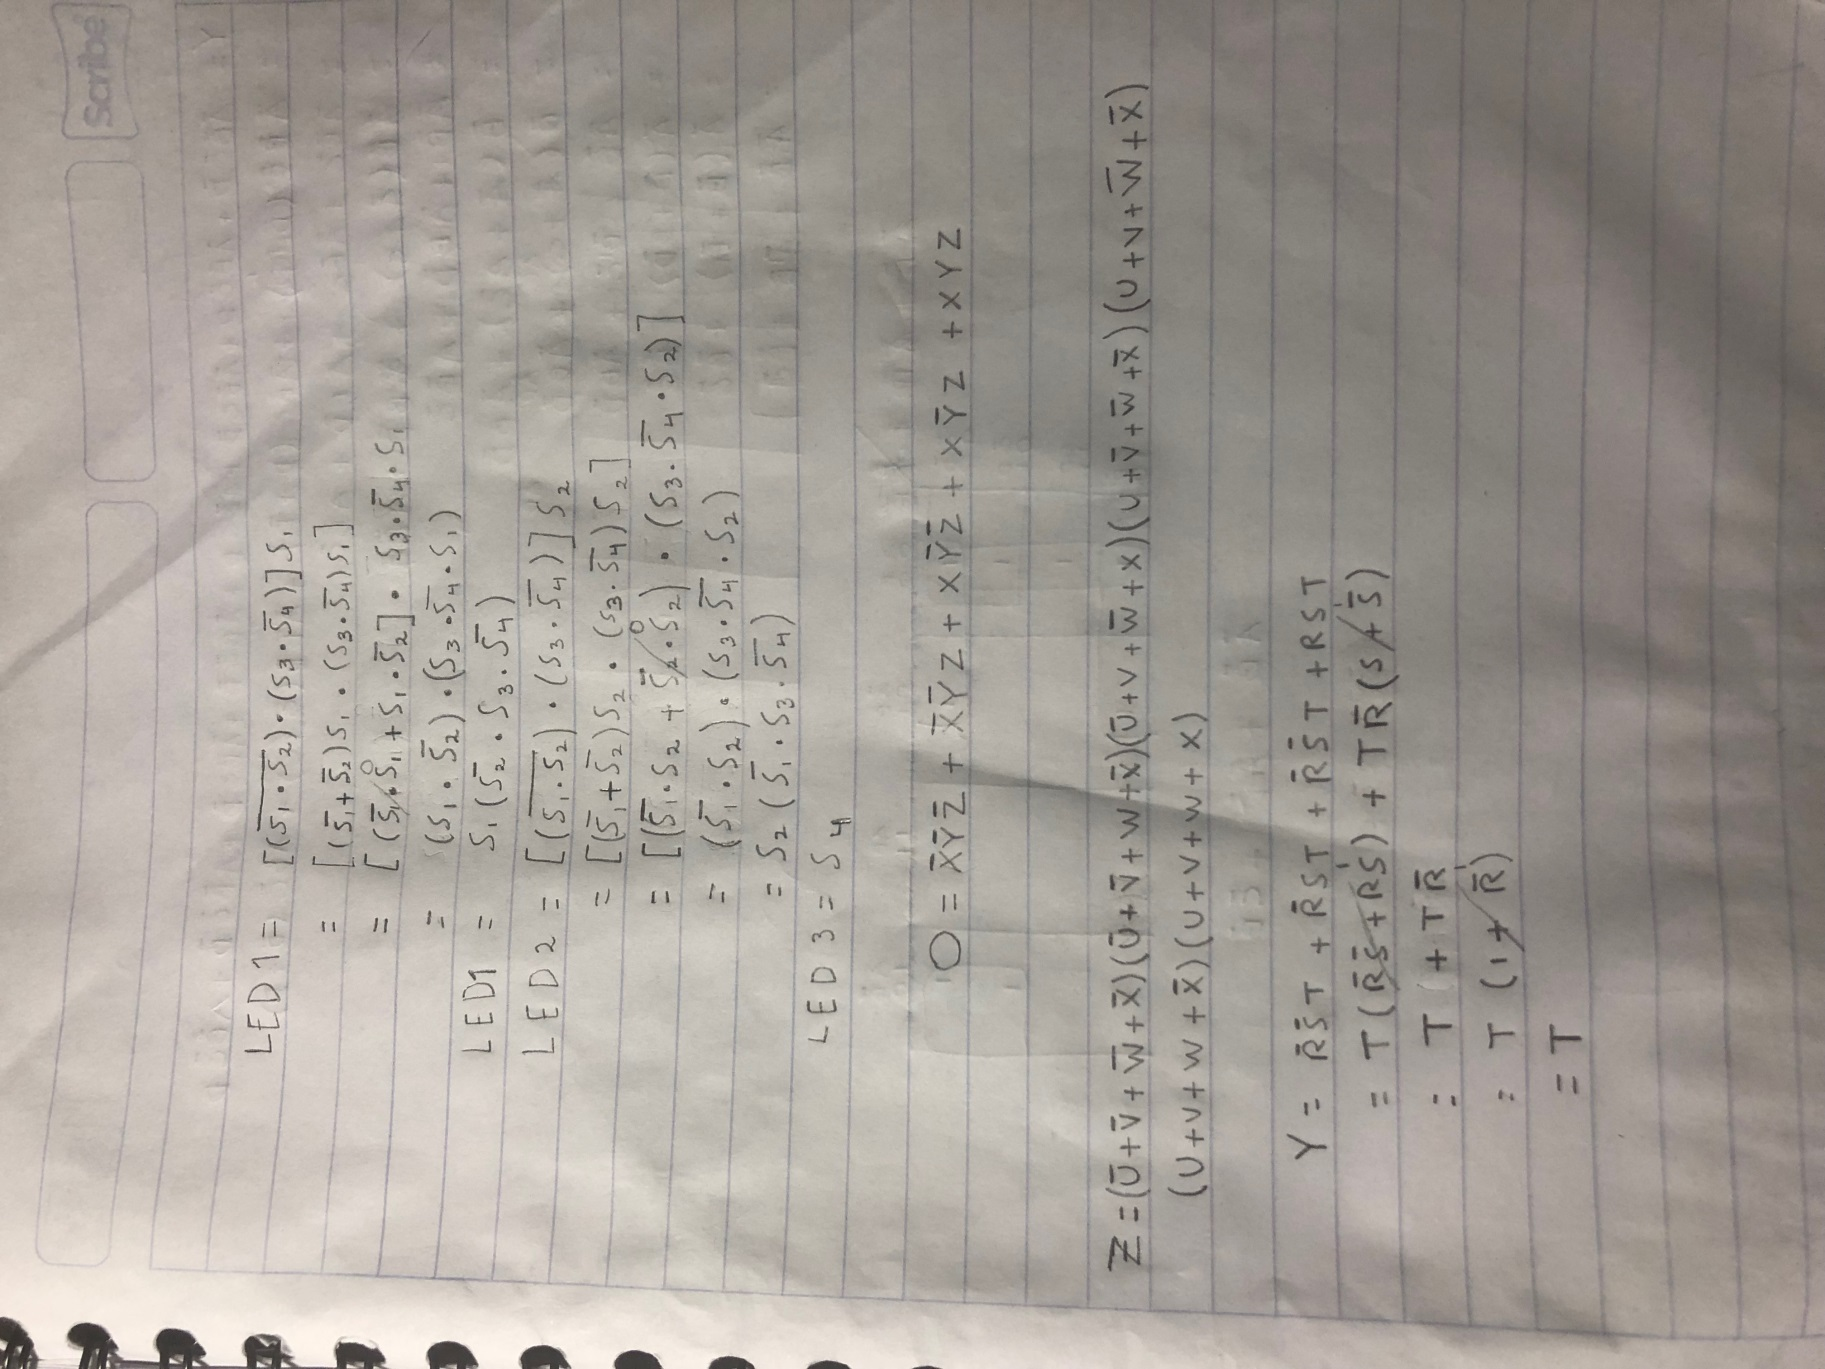 Scribe
LED 1 = [(\overline{S₁·S₂})·(S₃·S̅₄)]S₁
= [(S̅₁+S̅₂)S₁·(S₃·S̅₄)S₁]
= [(S̅₁·S₁⁰+S₁·S̅₂]·S₃·S̅₄·S₁
= (S₁·S̅₂)·(S₃·S̅₄·S₁)
LED1 = S₁(S̅₂·S₃·S̅₄)
LED 2 = [(\overline{S₁·S₂})·(S₃·S̅₄)]S₂
= [(S̅₁+S̅₂)S₂·(S₃·S̅₄)S₂]
= [(S̅₁·S₂+S̅₂·S₂⁰)·(S₃·S̅₄·S₂)]
= (S̅₁·S₂)·(S₃·S̅₄·S₂)
= S₂(S̅₁·S₃·S̅₄)
LED 3 = S₄
O = X̅Y̅Z̅ + X̅Y̅Z + XY̅Z̅ + XY̅Z + XYZ
Z = (U̅+V̅+W̅+X̅)(U̅+V̅+W+X̅)(U̅+V+W̅+X)(U+V̅+W̅+X̅)(U+V+W̅+X̅)
(U+V+W+X̅)(U+V+W+X)
Y = R̅S̅T + R̅ST + R̅S̅T + RST
= T(R̅S̅+RS) + TR̅(S+S̅)
= T + TR̅
= T(1+R̅)
= T